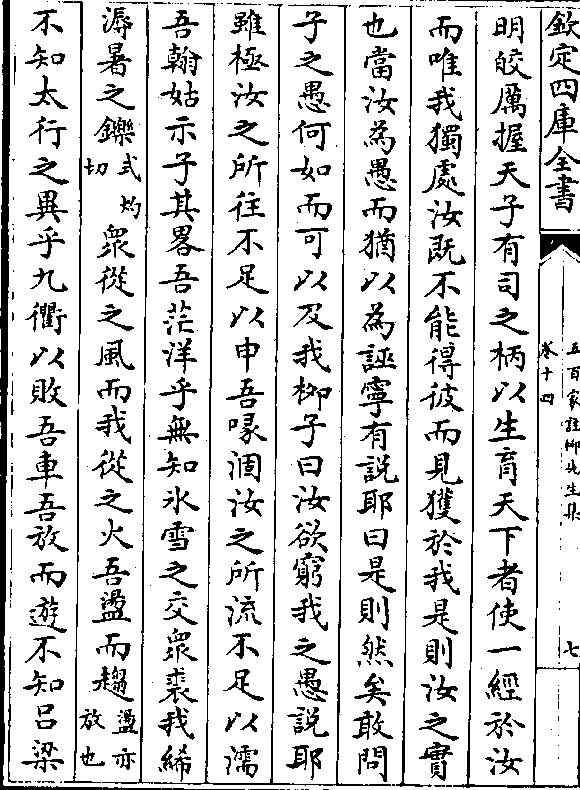 欽定四庫全書
五百家註柳先生集
卷十四
七
明皎厲握天子有司之柄以生育天下者使一經於汝
而唯我獨處汝既不能得彼而見獲於我是則汝之實
也當汝為愚而猶以為誣寧有說耶曰是則然矣敢問
子之愚何如而可以及我柳子曰汝欲窮我之愚說耶
雖極汝之所往不足以申吾喙涸汝之所流不足以濡
吾翰姑示子其畧吾茫洋乎無知氷雪之交衆裘我絺
溽暑之鑠式灼切衆從之風而我從之火吾盪而趨盪亦放也
不知太行之異乎九衢以敗吾車吾放而遊不知呂梁